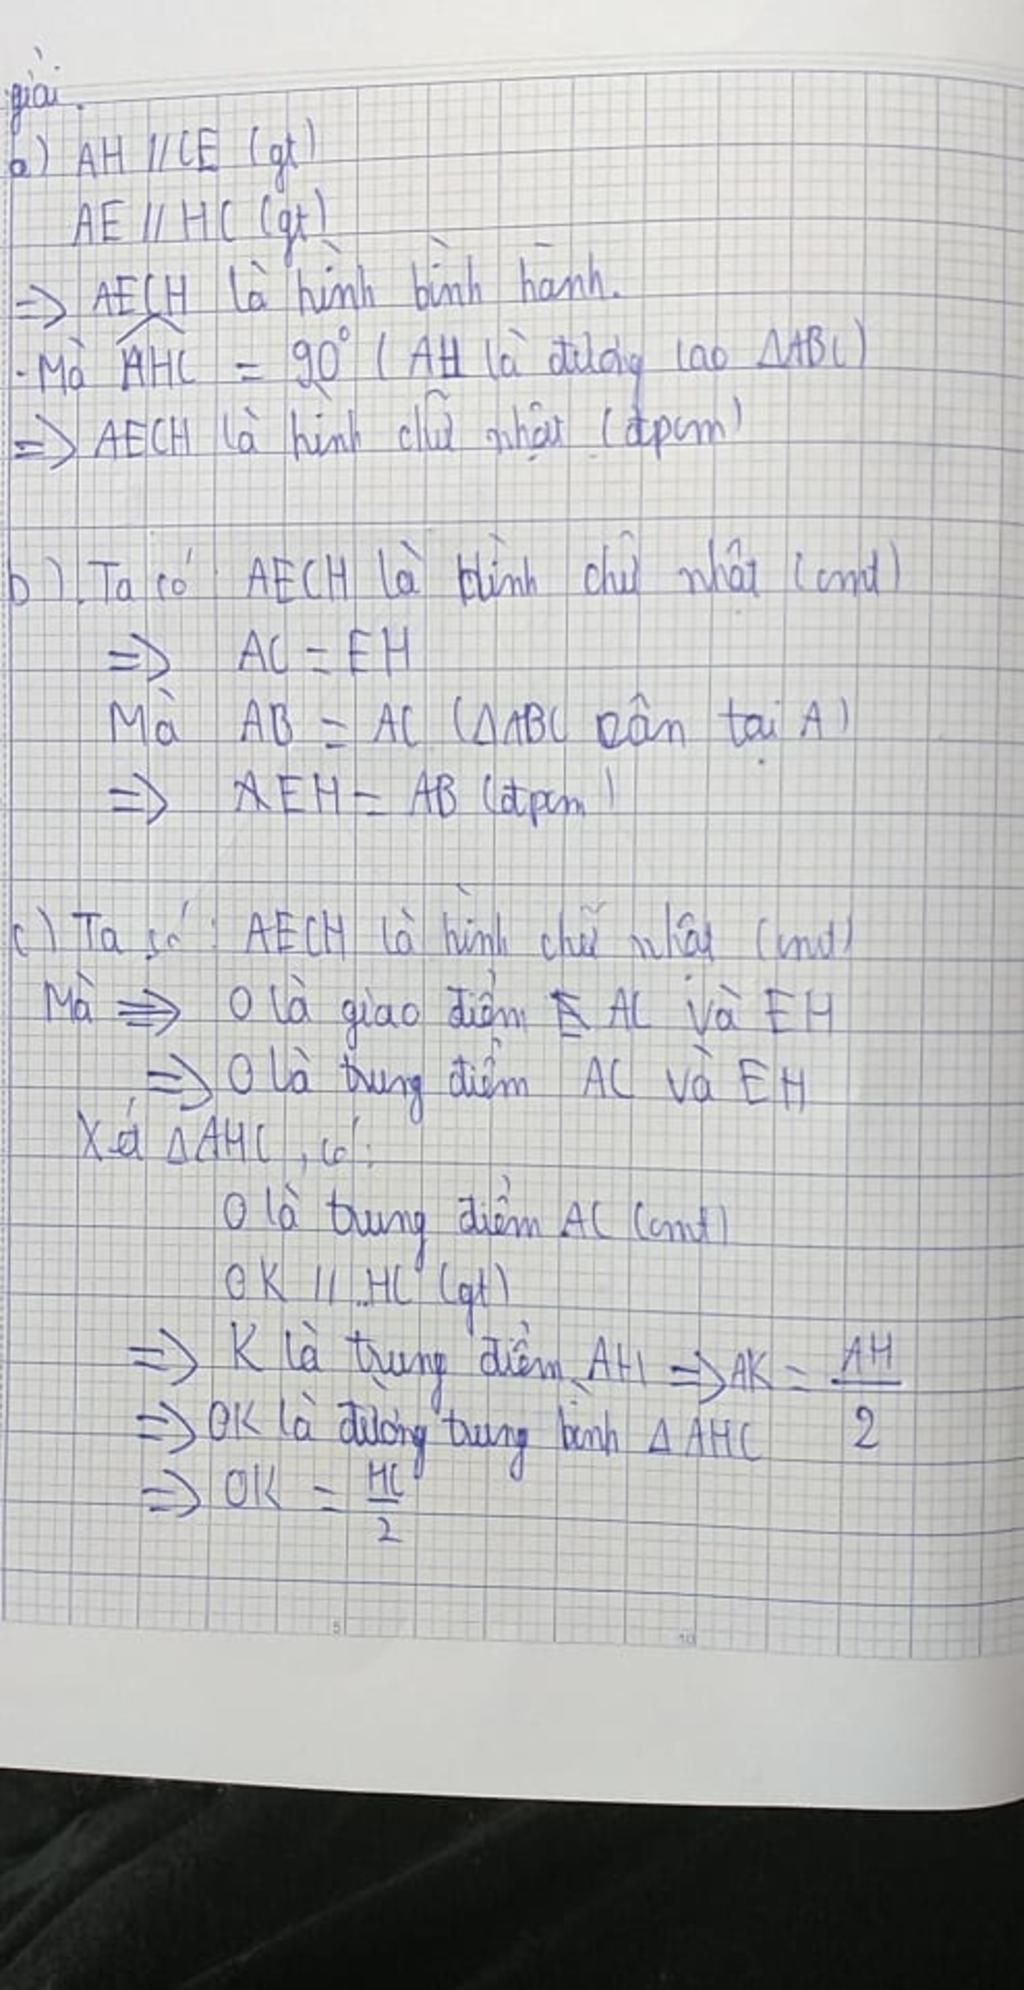 giải.
a) AH // CE (gt)
AE // HC (gt)
=> AECH là hình bình hành.
- Mà AHC = 90° (AH là đường cao ΔABC)
=> AECH là hình chữ nhật (đpcm)
b). Ta có: AECH là hình chữ nhật (cmt)
=> AC = EH
Mà AB = AC (ΔABC cân tại A)
=> EH = AB (đpcm)
c) Ta có: AECH là hình chữ nhật (cmt)
Mà => O là giao điểm AC và EH
=> O là trung điểm AC và EH
Xét ΔAHC, có:
O là trung điểm AC (cmt)
OK // HC (gt)
=> K là trung điểm AH => AK = AH/2
=> OK là đường trung bình ΔAHC
=> OK = HC/2
5 10